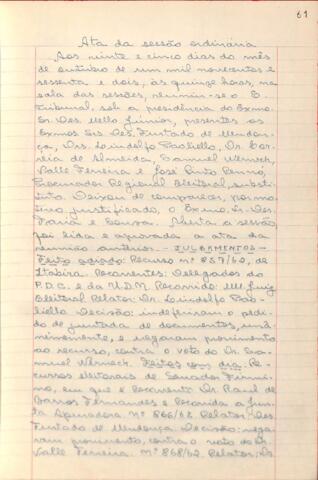 61
Ata da sessão ordinária
Aos vinte e cinco dias do mês
de outubro de um mil novecentos e
sessenta e dois, às quinze horas, na
sala das sessões, reuniu-se o E.
Tribunal, sob a presidência do Exmo.
Sr. Des. Mello Junior, presentes os
Exmos Srs. Des. Furtado de Mendon-
ça, Drs. Lindolfo Paoliello, Dr. Cor-
reia de Almeida, Samuel Werneck,
Valle Ferreira e José Pinto Renno,
Procurador Regional Eleitoral, substi-
tuto. Deixou de comparecer, por mo-
tivo justificado, o Exmo. Sr. Des.
Faria e Sousa. Aberta a sessão
foi lida e aprovada a ata da
reunião anterior. - JULGAMENTOS -
Feito adiado: Recurso nº 857/60, de
Itabira. Recorrentes: Delegados do
P.D.C. e da U.D.N. Recorrido: MM. Juiz
Eleitoral Relator: Dr. Lindolfo Pao-
liello Decisão: indeferiram o pedi-
do de juntada de documentos, unâ-
nimemente, e negaram provimento
ao recurso, contra o voto do Dr. Sa-
muel Werneck. Feitos com dia: Re-
cursos eleitorais de Senador Firmi-
no, em que é Recorrente Dr. Raul de
Barros Fernandes e Recorrida a Jun-
ta Apuradora. Nº 866/62 Relator: Des.
Furtado de Mendonça. Decisão: nega-
ram provimento, contra o voto do Dr.
Valle Ferreira. Nº 868/62. Relator: